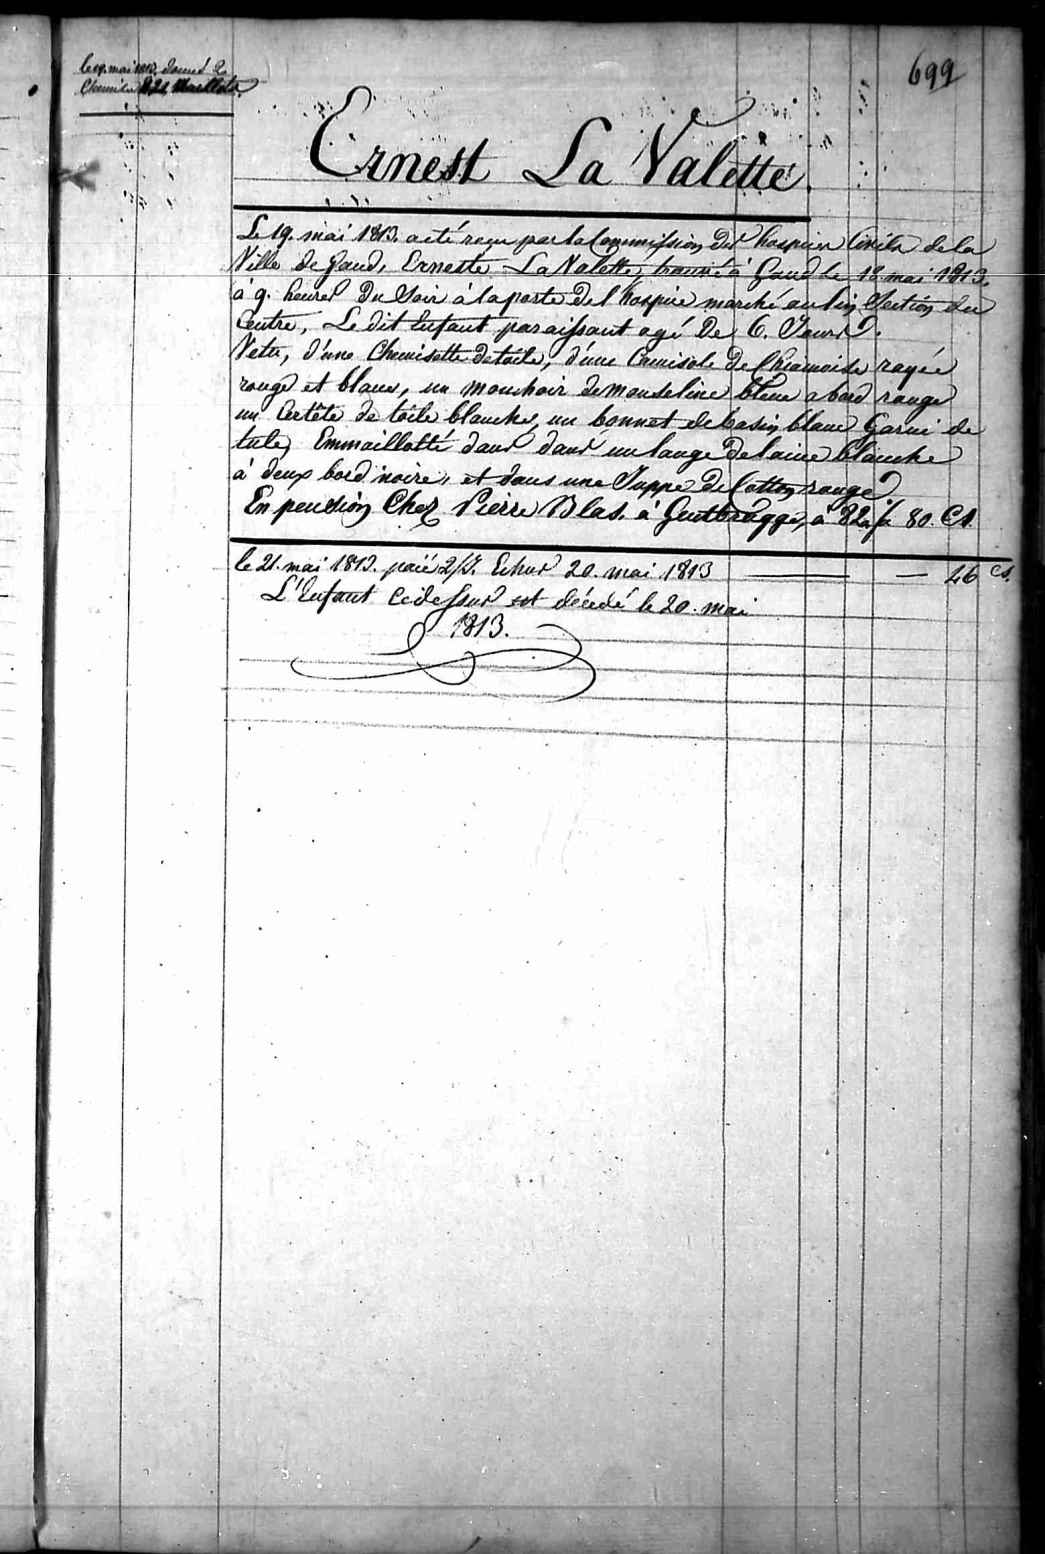 699
le 19. mai 1813. donné 2
Chemises & 2 Maillots.
Ernest La Valette.
Le 19. mai 1813. a été reçu par la Commission des hospices Civils de la
Ville de Gand, Ernest La Valette, trouvé à Gand le 18. mai 1813.
à 9. heures du Soir à la porte de l'hospice marché au lin, Section du
Centre, Le dit Enfant paraissant agé de 6. Jours.
Vetu, d'une Chemisette de toile, d'une Camisole de Chiamoise rayée
rouge et blanc, un mouchoir de mouseline bleue a bord rouge
un Certête de toile blanche, un bonnet de basin blanc Garni de
tule, Emmaillotté dans dans un lange de laine blanche
à deux bord noire, et dans une Juppe de Cotton rouge.
En pension Chez Pierre Blas. à Gentbrugge, à 82 f 80. Cs.
le 21. mai 1813. paié 2/J. Echus 20. mai 1813 46 Cs.
L'Enfant Cidessus est décédé le 20. mai
1813.